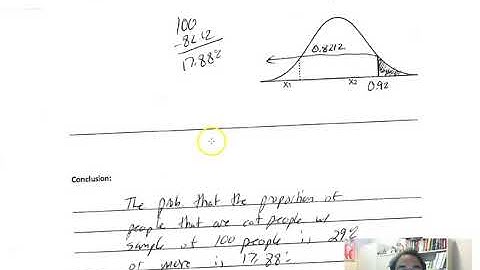 100
-82.12
17.88%
0.8212
X1
X2
0.92
Conclusion:
The prob. that the proportion of
people that are cat people w/
sample of 100 people is 29%
or more is 17.88%